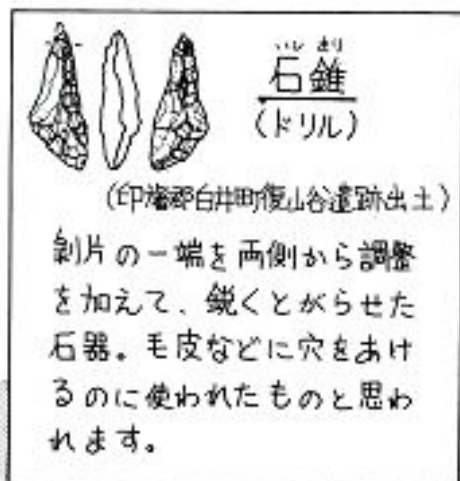 いし きり
石錐
(ドリル)
(印旛郡白井町復山谷遺跡出土)
剝片の一端を両側から調整
を加えて、鋭くとがらせた
石器。毛皮などに穴をあけ
るのに使われたものと思わ
れます。